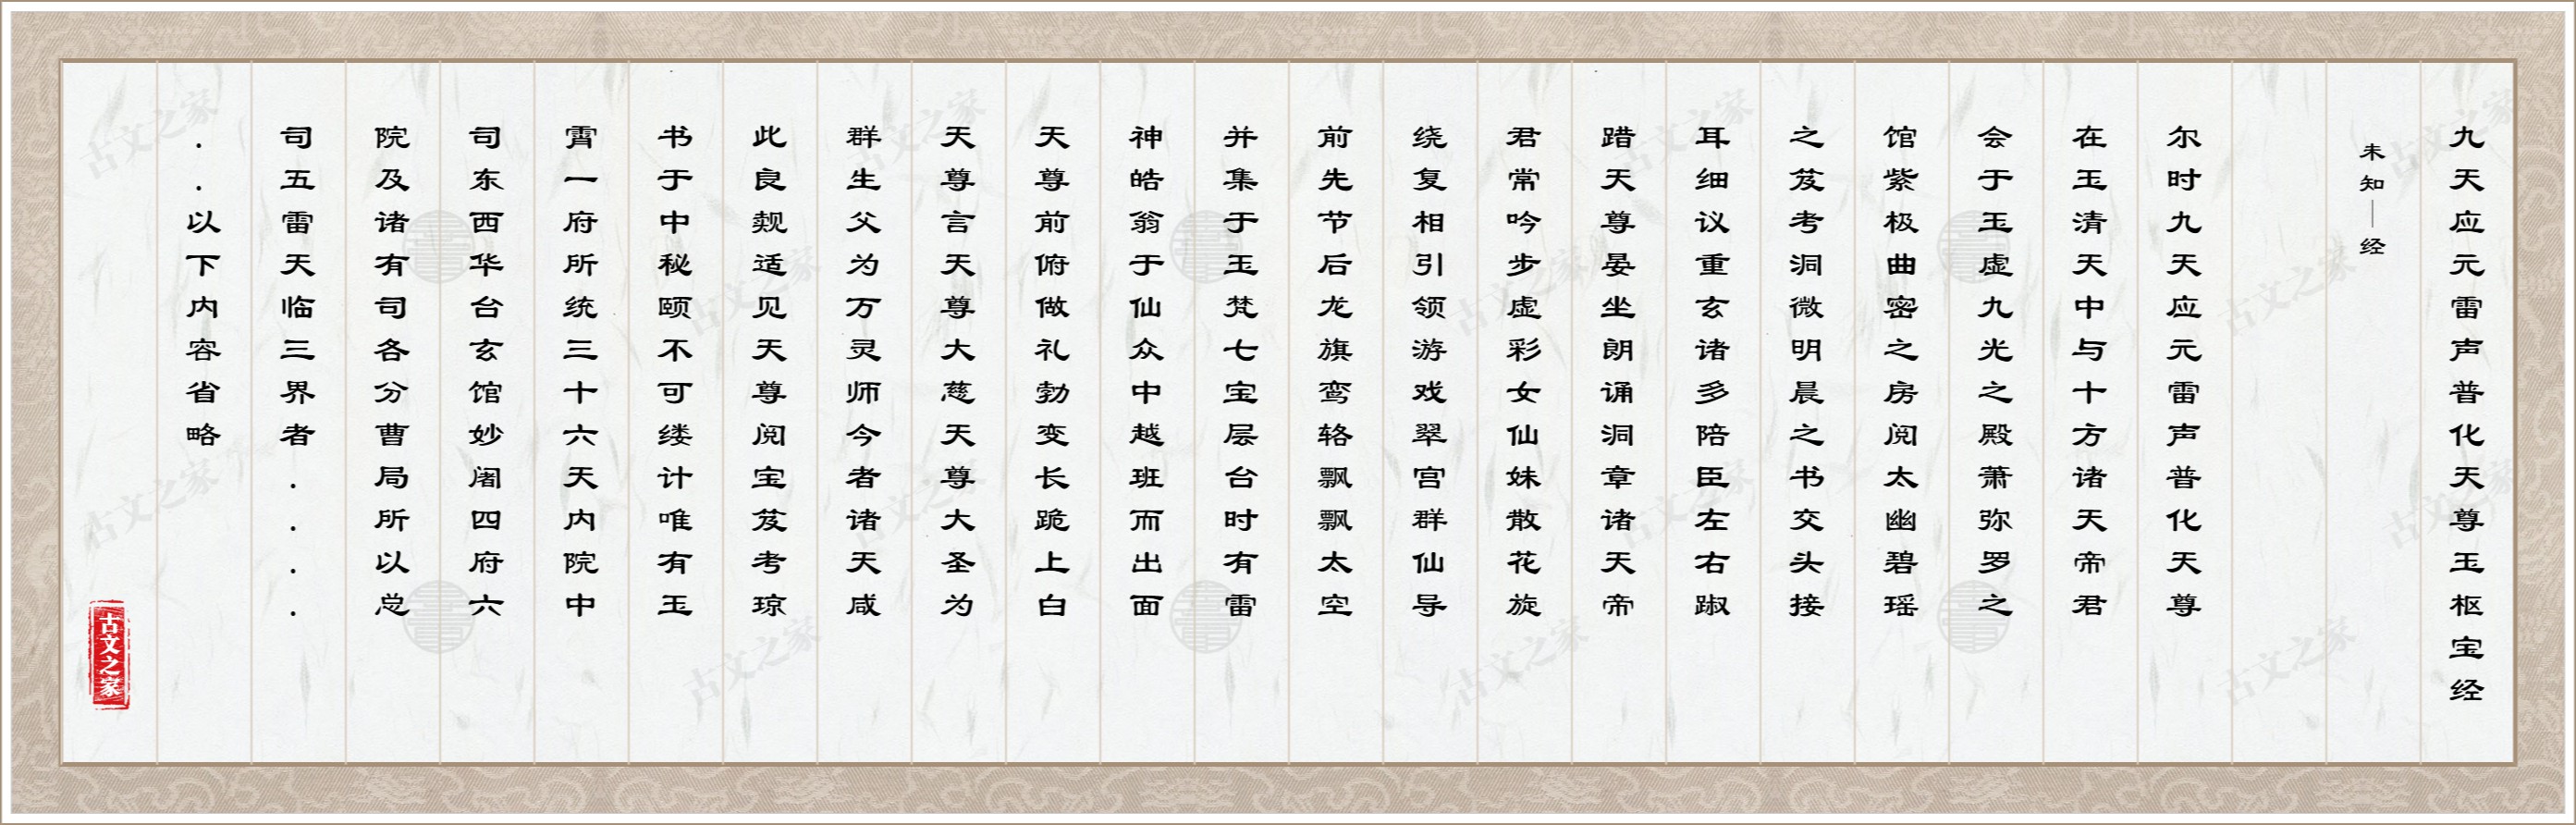 九天应元雷声普化天尊玉枢宝经
未知｜经
尔时九天应元雷声普化天尊
在玉清天中与十方诸天帝君
会于玉虚九光之殿萧弥罗之
馆紫极曲密之房阅太幽碧瑶
之笈考洞微明晨之书交头接
耳细议重玄诸多陪臣左右踧
踖天尊晏坐朗诵洞章诸天帝
君常吟步虚彩女仙姝散花旋
绕复相引领游戏翠宫群仙导
前先节后龙旗鸾辂飘飘太空
并集于玉梵七宝层台时有雷
神皓翁于仙众中越班而出面
天尊前俯做礼勃变长跪上白
天尊言天尊大慈天尊大圣为
群生父为万灵师今者诸天咸
此良觌适见天尊阅宝笈考琼
书于中秘颐不可缕计唯有玉
霄一府所统三十六天内院中
司东西华台玄馆妙阁四府六
院及诸有司各分曹局所以总
司五雷天临三界者....
..以下内容省略
古文之家